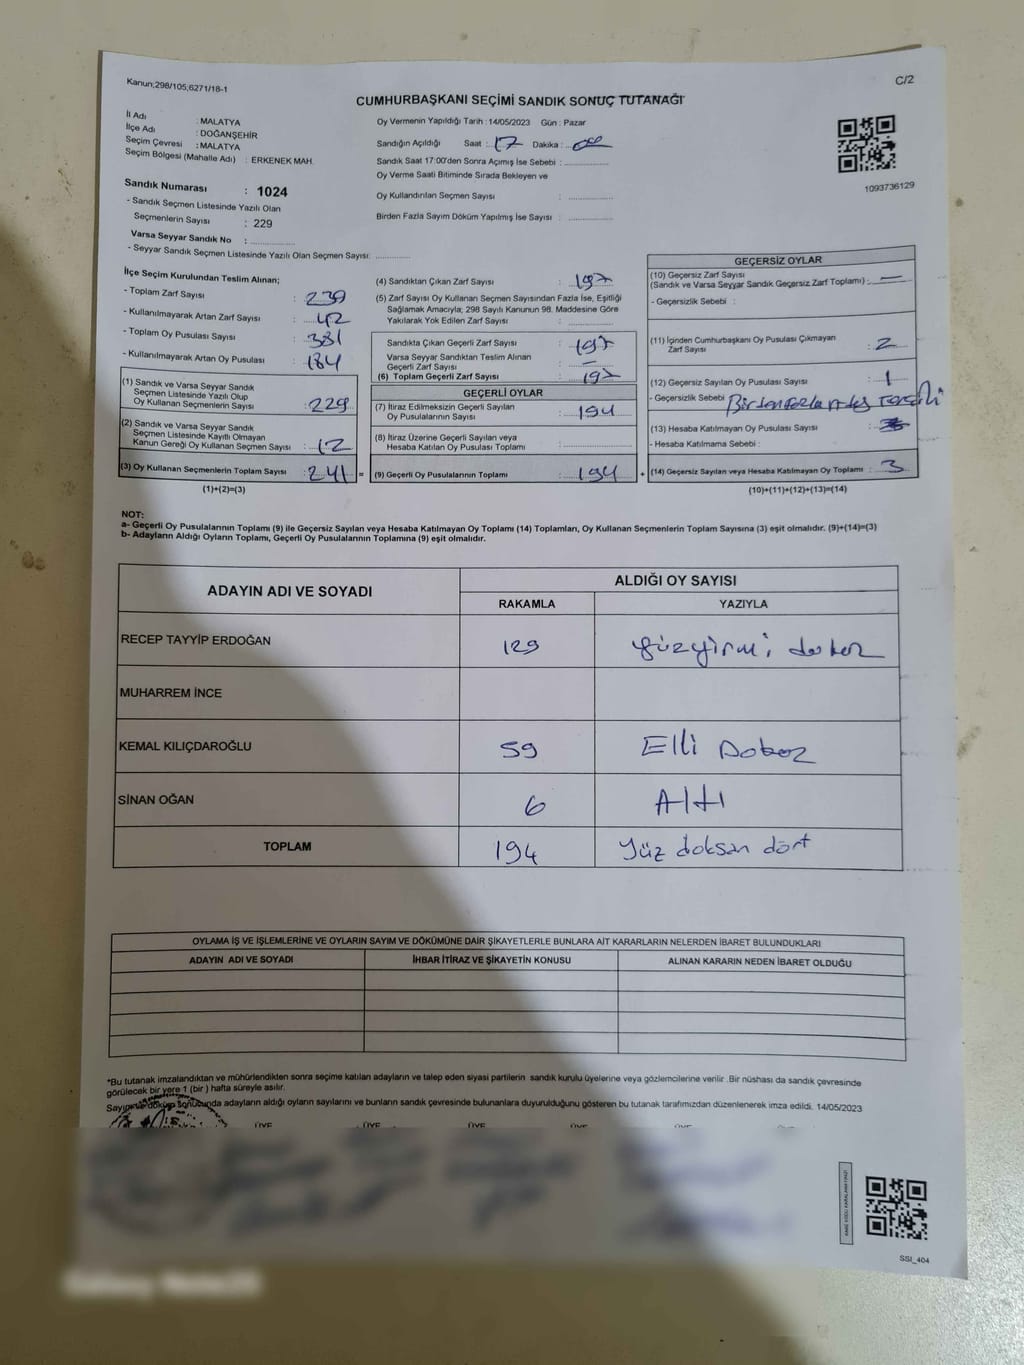 Kanun;298/105,6271/18-1
C/2
CUMHURBAŞKANI SEÇİMİ SANDIK SONUÇ TUTANAĞI
İl Adı : MALATYA
İlçe Adı : DOĞANŞEHİR
Seçim Çevresi : MALATYA
Seçim Bölgesi (Mahalle Adı) : ERKENEK MAH.
Sandık Numarası : 1024
- Sandık Seçmen Listesinde Yazılı Olan
Seçmenlerin Sayısı : 229
Varsa Seyyar Sandık No :
- Seyyar Sandık Seçmen Listesinde Yazılı Olan Seçmen Sayısı:
Oy Vermenin Yapıldığı Tarih : 14/05/2023 Gün : Pazar
Sandığın Açıldığı Saat : 17 Dakika : 00
Sandık Saat 17:00'den Sonra Açımış İse Sebebi :
Oy Verme Saati Bitiminde Sırada Bekleyen ve
Oy Kullandırılan Seçmen Sayısı :
Birden Fazla Sayım Döküm Yapılmış İse Sayısı :
1093736129
İlçe Seçim Kurulundan Teslim Alınan;
- Toplam Zarf Sayısı : 239
- Kullanılmayarak Artan Zarf Sayısı : 42
- Toplam Oy Pusulası Sayısı : 381
- Kullanılmayarak Artan Oy Pusulası : 184
(1) Sandık ve Varsa Seyyar Sandık
Seçmen Listesinde Yazılı Olup
Oy Kullanan Seçmenlerin Sayısı : 229
(2) Sandık ve Varsa Seyyar Sandık
Seçmen Listesinde Kayıtlı Olmayan
Kanun Gereği Oy Kullanan Seçmen Sayısı : 12
(3) Oy Kullanan Seçmenlerin Toplam Sayısı : 241 =
(1)+(2)=(3)
(4) Sandıktan Çıkan Zarf Sayısı : 197
(5) Zarf Sayısı Oy Kullanan Seçmen Sayısından Fazla İse, Eşitliği
Sağlamak Amacıyla; 298 Sayılı Kanunun 98. Maddesine Göre
Yakılarak Yok Edilen Zarf Sayısı :
Sandıkta Çıkan Geçerli Zarf Sayısı : 197
Varsa Seyyar Sandıktan Teslim Alınan
Geçerli Zarf Sayısı : –
(6) Toplam Geçerli Zarf Sayısı : 197
GEÇERLİ OYLAR
(7) İtiraz Edilmeksizin Geçerli Sayılan
Oy Pusulalarının Sayısı : 194
(8) İtiraz Üzerine Geçerli Sayılan veya
Hesaba Katılan Oy Pusulası Toplamı :
(9) Geçerli Oy Pusulalarının Toplamı : 194 +
GEÇERSİZ OYLAR
(10) Geçersiz Zarf Sayısı
(Sandık ve Varsa Seyyar Sandık Geçersiz Zarf Toplamı) : —
- Geçersizlik Sebebi :
(11) İçinden Cumhurbaşkanı Oy Pusulası Çıkmayan
Zarf Sayısı : 2
(12) Geçersiz Sayılan Oy Pusulası Sayısı : 1
- Geçersizlik Sebebi Birden fazla Aday Tercihi
(13) Hesaba Katılmayan Oy Pusulası Sayısı :
- Hesaba Katılmama Sebebi :
(14) Geçersiz Sayılan veya Hesaba Katılmayan Oy Toplamı : 3
(10)+(11)+(12)+(13)=(14)
NOT:
a- Geçerli Oy Pusulalarının Toplamı (9) ile Geçersiz Sayılan veya Hesaba Katılmayan Oy Toplamı (14) Toplamları, Oy Kullanan Seçmenlerin Toplam Sayısına (3) eşit olmalıdır. (9)+(14)=(3)
b- Adayların Aldığı Oyların Toplamı, Geçerli Oy Pusulalarının Toplamına (9) eşit olmalıdır.
ADAYIN ADI VE SOYADI
ALDIĞI OY SAYISI
RAKAMLA YAZIYLA
RECEP TAYYİP ERDOĞAN 129 yüzyirmi dokuz
MUHARREM İNCE
KEMAL KILIÇDAROĞLU 59 Elli Dokuz
SİNAN OĞAN 6 Altı
TOPLAM 194 Yüz doksan dört
OYLAMA İŞ VE İŞLEMLERİNE VE OYLARIN SAYIM VE DÖKÜMÜNE DAİR ŞİKAYETLERLE BUNLARA AİT KARARLARIN NELERDEN İBARET BULUNDUKLARI
ADAYIN ADI VE SOYADI İHBAR İTİRAZ VE ŞİKAYETİN KONUSU ALINAN KARARIN NEDEN İBARET OLDUĞU
*Bu tutanak imzalandıktan ve mühürlendikten sonra seçime katılan adayların ve talep eden siyasi partilerin sandık kurulu üyelerine veya gözlemcilerine verilir .Bir nüshası da sandık çevresinde
görülecek bir yere 1 (bir ) hafta süreyle asılır.
Sayım ve döküm sonucunda adayların aldığı oyların sayılarını ve bunların sandık çevresinde bulunanlara duyurulduğunu gösteren bu tutanak tarafımızdan düzenlenerek imza edildi. 14/05/2023
ÜYE ÜYE ÜYE ÜYE ÜYE ÜYE
SSI_404